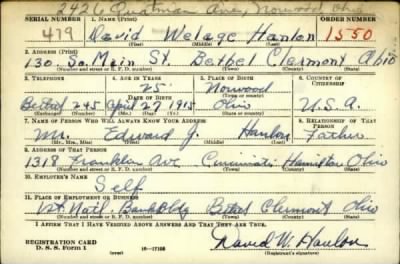 2426 Quatman Ave, Norwood Ohio
SERIAL NUMBER 1. NAME (Print) ORDER NUMBER
479 David Welage Hanlon 1550
(First) (Middle) (Last)
2. ADDRESS (Print)
130 So. Main St. Bethel Clermont Ohio
(Number and street or R. F. D. number) (Town) (County) (State)
3. TELEPHONE 4. AGE IN YEARS 5. PLACE OF BIRTH 6. COUNTRY OF CITIZENSHIP
25 Norwood
DATE OF BIRTH (Town or county)
Bethel 245 April 27 1915 Ohio U.S.A.
(Exchange) (Number) (Mo.) (Day) (Yr.) (State or country)
7. NAME OF PERSON WHO WILL ALWAYS KNOW YOUR ADDRESS 8. RELATIONSHIP OF THAT PERSON
Mr. Edward J. Hanlon Father
(Mr., Mrs., Miss) (First) (Middle) (Last)
9. ADDRESS OF THAT PERSON
1318 Franklin Ave Cincinnati Hamilton Ohio
(Number and street or R. F. D. number) (Town) (County) (State)
10. EMPLOYER'S NAME
Self
11. PLACE OF EMPLOYMENT OR BUSINESS
1st Natl. Bank Bldg Bethel Clermont Ohio
(Number and street or R. F. D. number) (Town) (County) (State)
I AFFIRM THAT I HAVE VERIFIED ABOVE ANSWERS AND THAT THEY ARE TRUE.
REGISTRATION CARD
D. S. S. Form 1 16-17105 David W. Hanlon
(Registrant's signature)